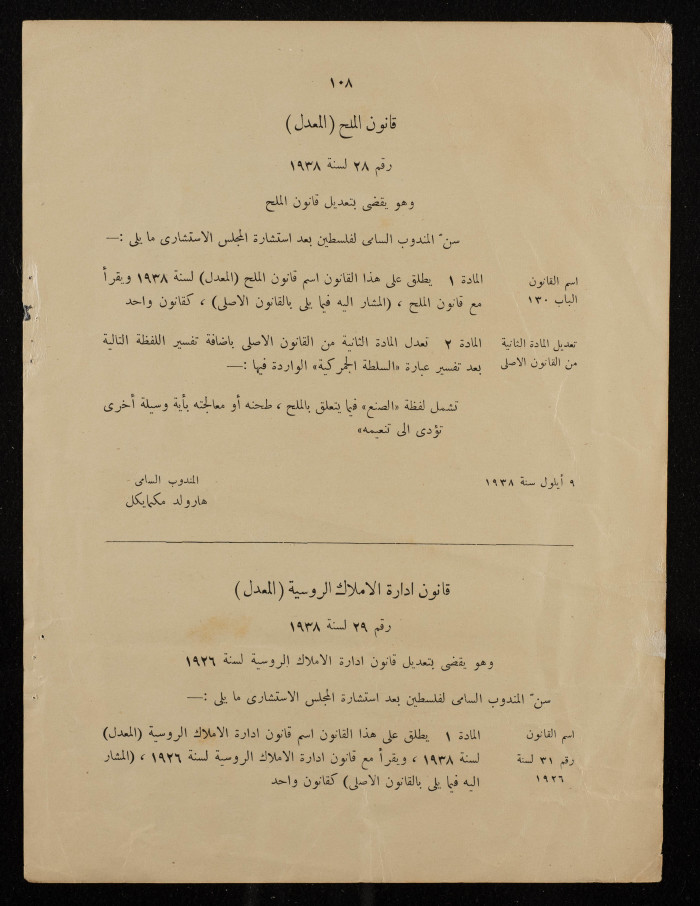 ١٠٨
قانون الملح (المعدل)
رقم ٢٨ لسنة ١٩٣٨
وهو يقضى بتعديل قانون الملح
سنّ المندوب السامى لفلسطين بعد استشارة المجلس الاستشارى ما يلى :—
اسم القانون
الباب ١٣٠
المادة ١ يطلق على هذا القانون اسم قانون الملح (المعدل) لسنة ١٩٣٨ ويقرأ
مع قانون الملح ، (المشار اليه فيما يلى بالقانون الاصلى) ، كقانون واحد
تعديل المادة الثانية
من القانون الاصلى
المادة ٢ تعدل المادة الثانية من القانون الاصلى باضافة تفسير اللفظة التالية
بعد تفسير عبارة «السلطة الجمركية» الواردة فيها :—
تشمل لفظة «الصنع» فيما يتعلق بالملح ، طحنه أو معالجته بأية وسيلة أخرى
تؤدى الى تنعيمه»
٩ أيلول سنة ١٩٣٨
المندوب السامى
هارولد مكمايكل
قانون ادارة الاملاك الروسية (المعدل)
رقم ٢٩ لسنة ١٩٣٨
وهو يقضى بتعديل قانون ادارة الاملاك الروسية لسنة ١٩٢٦
سنّ المندوب السامى لفلسطين بعد استشارة المجلس الاستشارى ما يلى :—
اسم القانون
رقم ٣١ لسنة
١٩٢٦
المادة ١ يطلق على هذا القانون اسم قانون ادارة الاملاك الروسية (المعدل)
لسنة ١٩٣٨ ، ويقرأ مع قانون ادارة الاملاك الروسية لسنة ١٩٢٦ ، (المشار
اليه فيما يلى بالقانون الاصلى) كقانون واحد